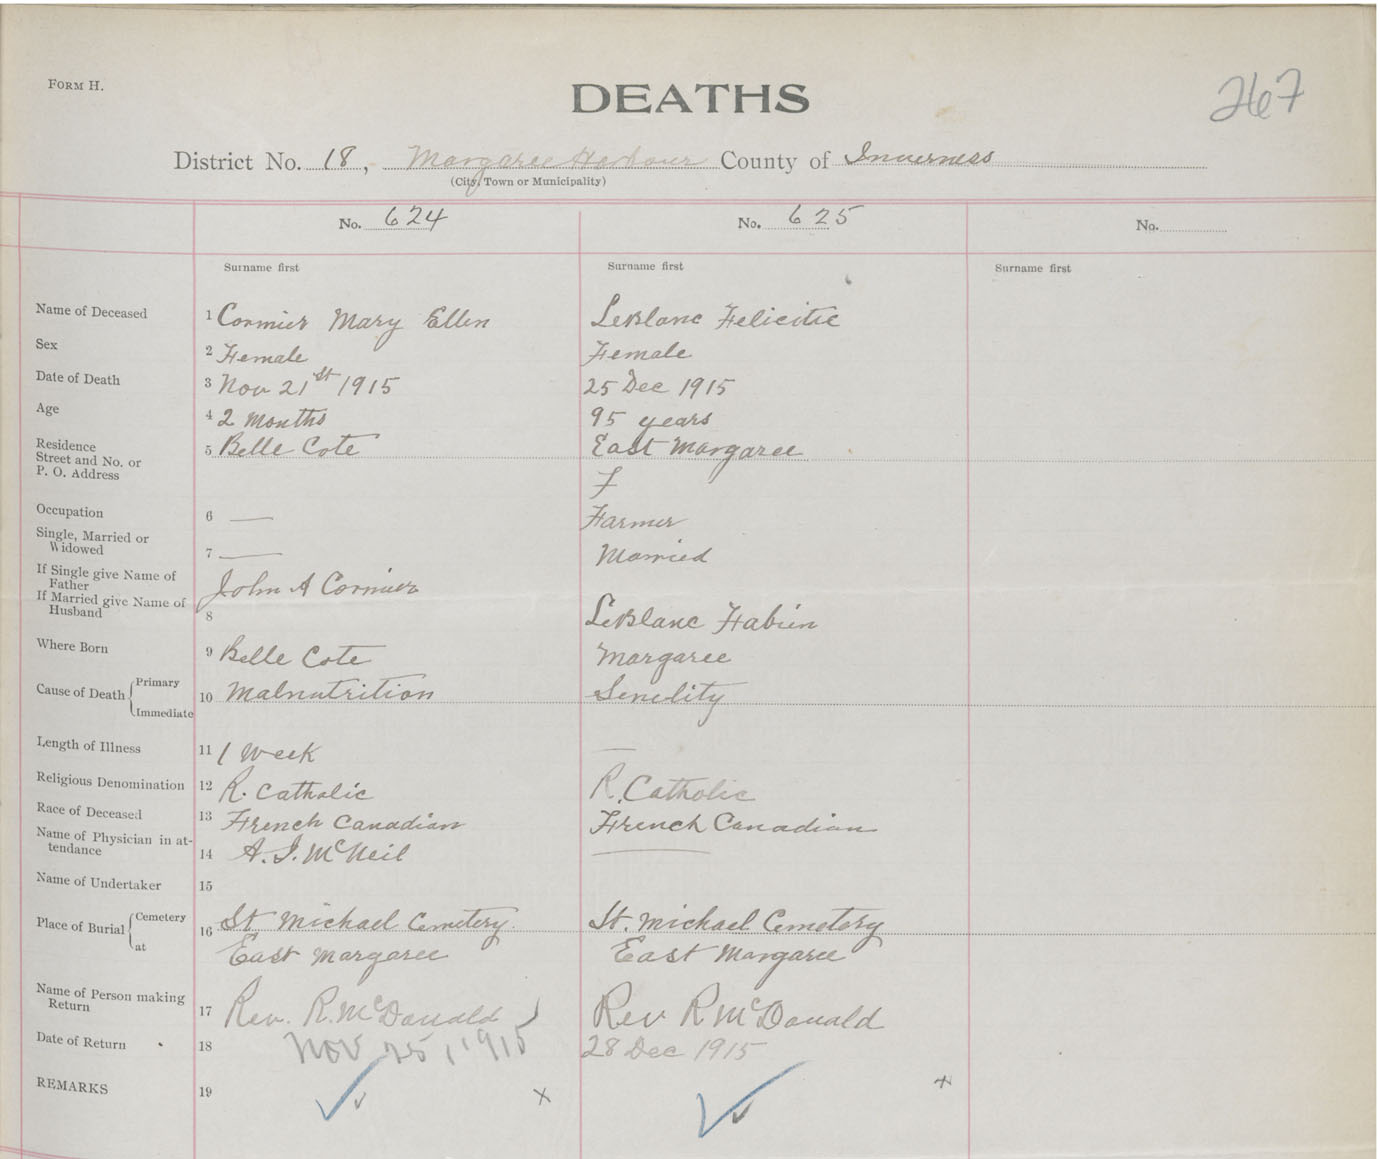 FORM H.
DEATHS
267
District No. 18, Margaree Harbour County of Inverness
(City, Town or Municipality)
No. 624 No. 625 No.
Surname first Surname first Surname first
Name of Deceased 1 Cormier Mary Ellen LeBlanc Felicitie
Sex 2 Female Female
Date of Death 3 Nov 21st 1915 25 Dec 1915
Age 4 2 Months 95 years
Residence
Street and No. or
P. O. Address 5 Belle Cote East Margaree
F
Occupation 6 — Farmer
Single, Married or
Widowed 7 — Married
If Single give Name of
Father John A Cormier
If Married give Name of
Husband 8 LeBlanc Fabien
Where Born 9 Belle Cote Margaree
Cause of Death { Primary
Immediate 10 Malnutrition Senelity
Length of Illness 11 1 Week —
Religious Denomination 12 R. Catholic R. Catholic
Race of Deceased 13 French Canadian French Canadian
Name of Physician in at-
tendance 14 A. J. McNeil —
Name of Undertaker 15
Place of Burial { Cemetery
at 16 St Michael Cemetery. St. Michael Cemetery
East Margaree East Margaree
Name of Person making
Return 17 Rev. R. McDonald Rev R McDonald
Date of Return 18 Nov 25, 1915 28 Dec 1915
REMARKS 19 x x